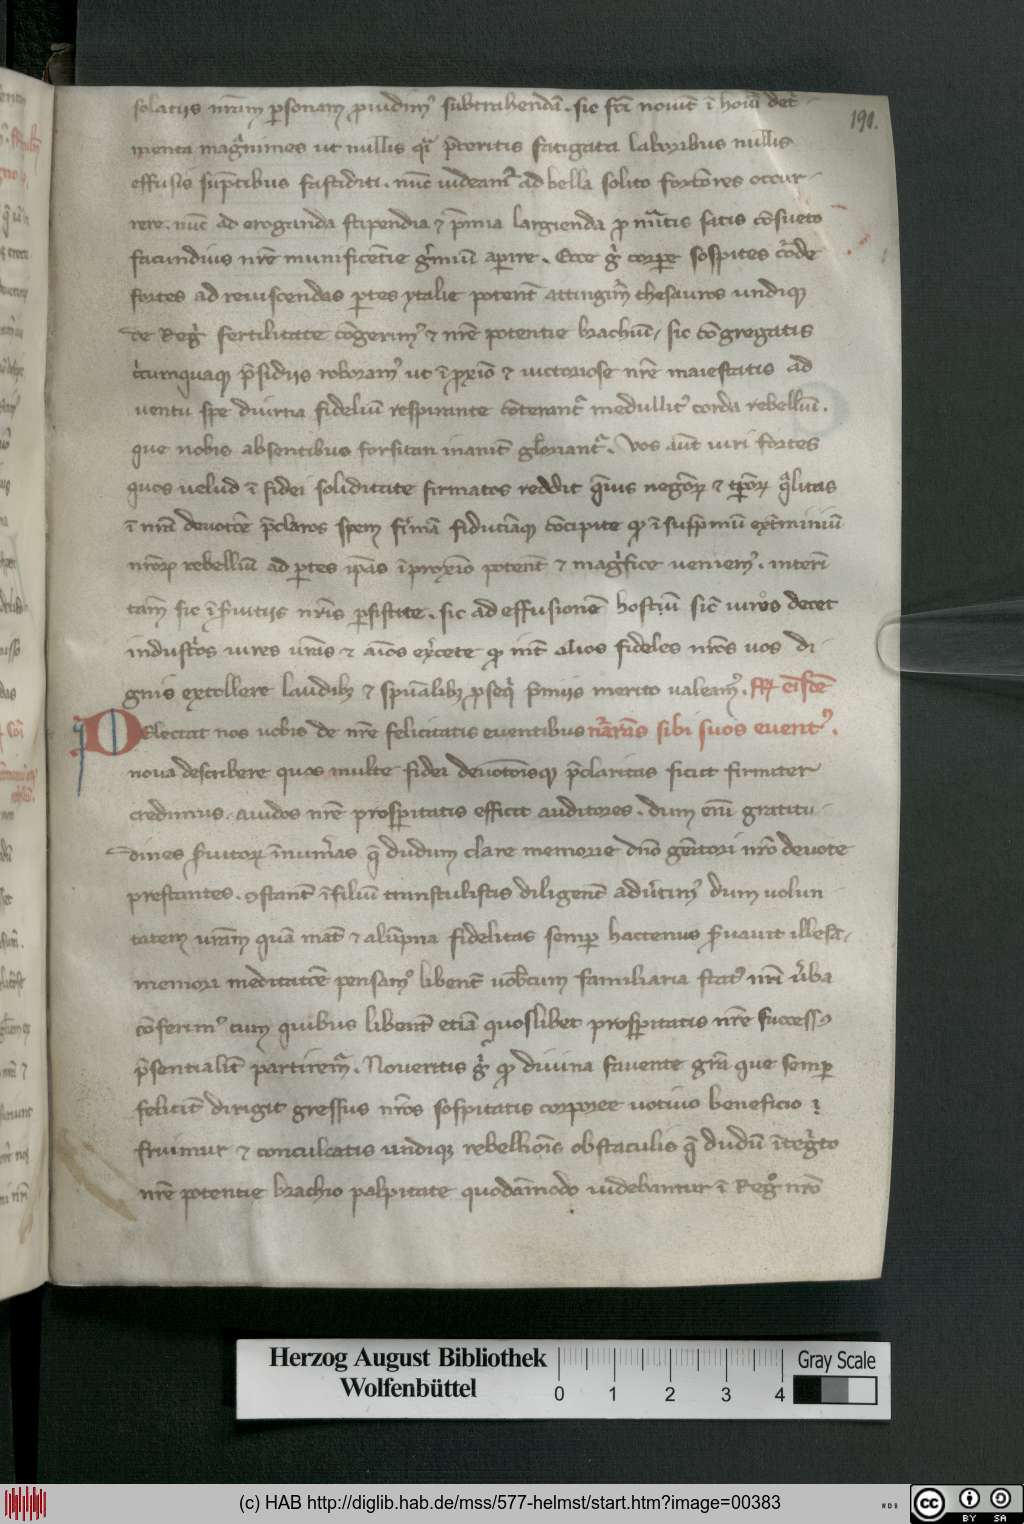 191.
solatiis nr̄am ꝑsonam ꝓuidimꝰ subtrahendā. sic
menta magnimes ut nullis p̄teritis fatigata laboribus nullis
effusis sūptibus fastiditi. nūc uideamꝰ ad bella solito fortōres occur
rere. nūc ad eroganda stipendia ⁊ p̄mia largienda ꝓ satis cōsueto
facundius nr̄e munificētie gremiū aꝑire. Ecce gͥ corꝑe sospites corde
fortes ad reuiscendas ꝑtes ytalie potent᷑ attingimꝰ thesauros undiqꝫ
de Regͥ fertilitate cōgerimꝰ ⁊ nr̄e potentie brachiū, sic cōgregatis
p̄sidiis roboramꝰ ut ī ꝓxīo ⁊ uictoriose nr̄e maiestatis ad
uentu spe diurna fideliū respirante cōterant᷑ medullitꝰ corda rebelliū.
que nobis absentibus forsitan inanit᷑ gloriant᷑. Vos aūt uiri fortes
quos uelud ī fidei soliditate firmatos reddit negōꝝ ⁊ tꝑoꝝ q̄litas
ī nr̄i deuotōe p̄claros spem firmā fiduciāqꝫ cōcipite ꝙ ī suppmū ext̄miniū
nr̄oꝝ rebelliū ad ꝑtes ip̄as ī proxīo potent᷑ ⁊ magͥfice ueniemꝰ. interī
tam̄ sic ī s̄uitiis nr̄is ꝑsistite. sic ad effusionē hostiū sic̄ uiros decet
industͥos uires ur̄as ⁊ aīos ex̄cete ꝙ int᷑ alios fideles nr̄os uos di
gnis extollere laudibꝫ ⁊ spūalibꝫ ꝓseqͥ p̄miis merito ualeamꝰ.
Delectat nos uobis de nr̄e felicitatis euentibus narrans sibi suos euentꝰ.
noua describere quos multe fidei deuotōisqꝫ p̄claritas sicut firmiter
credimus. auidos nr̄e prosꝑitatis efficit auditores. dum enī gratitu
dines s̄uitoꝝ īnum̄as q̄ dudum clare memorie dn̄o genitori nr̄o deuote
prestantes. ꝯstant᷑ ī filiū transtulistis diligent᷑ aduertimꝰ dum uolun
tatem ur̄am quā mat᷑ ⁊ alūpna fidelitas semꝑ hactenus s̄uauit illesā,
memori meditatōe pensamꝰ libent᷑ uobcum familiaria statꝰ nr̄i u̇ba
cōferimꝰ cum quibus libent᷑ etiā quoslibet prosꝑitatis nr̄e successꝰ
p̄sentialit᷑ partirem᷑. Noueritis gͥ ꝙ diuina fauente gr̄a que semꝑ
felicit᷑ dirigit gressus nr̄os sospitatis corporee uotiuo beneficio
fruimur ⁊ conculcatis undiqꝫ rebelliōis obstaculis q̄ dudū ītegͣto
nr̄e potentie brachio palpitate quodāmodo uidebantur ī Regͦ nr̄o
Herzog August Bibliothek
Wolfenbüttel
0 1 2 3 4
Gray Scale
(c) HAB http://diglib.hab.de/mss/577-helmst/start.htm?image=00383
WDB
cc BY SA